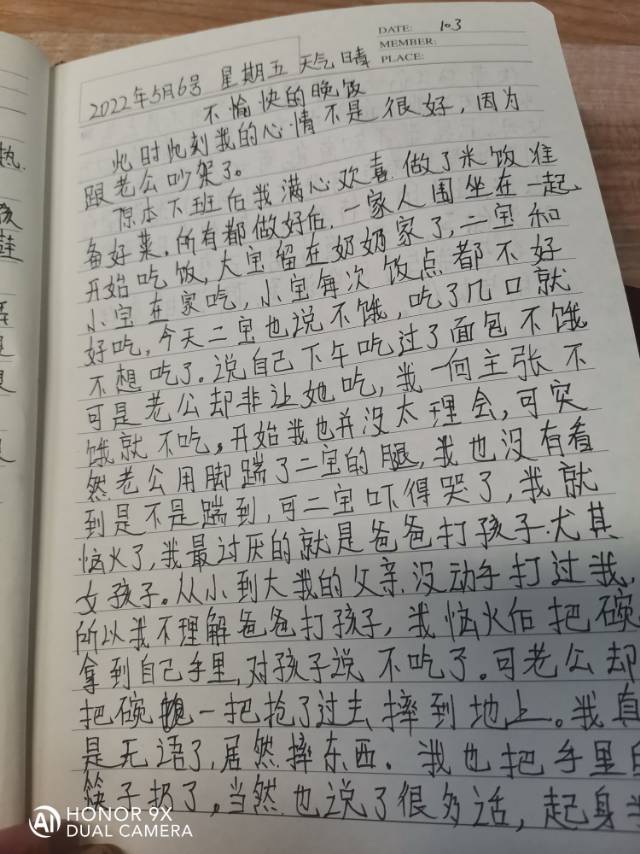 DATE: 103
MEMBER:
PLACE:
2022年5月6号 星期五 天气晴
不愉快的晚饭
此时此刻我的心情不是很好,因为
跟老公吵架了。
原本下班后我满心欢喜 做了米饭准
备好菜.所有都做好后.一家人围坐在一起.
开始吃饭,大宝留在奶奶家了,二宝和
小宝在家吃,小宝每次饭点都不好
好吃,今天二宝也说不饿,吃了几口就
不想吃了.说自己下午吃过了面包不饿
可是老公却非让她吃,我一向主张不
饿就不吃。开始我也并没太理会,可突
然老公用脚踹了二宝的腿,我也没有看
到是不是踹到,可二宝吓得哭了,我就
恼火了,我最讨厌的就是爸爸打孩子.尤其
女孩子。从小到大我的父亲没动手打过我,
所以我不理解爸爸打孩子,我恼火后把碗
拿到自己手里,对孩子说 不吃了。可老公却
把碗一把抢了过去摔到地上。我真
是无语了,居然摔东西.我也把手里
筷子扔了,当然也说了很多话,起身
热.
孩
HONOR 9X
DUAL CAMERA
AI